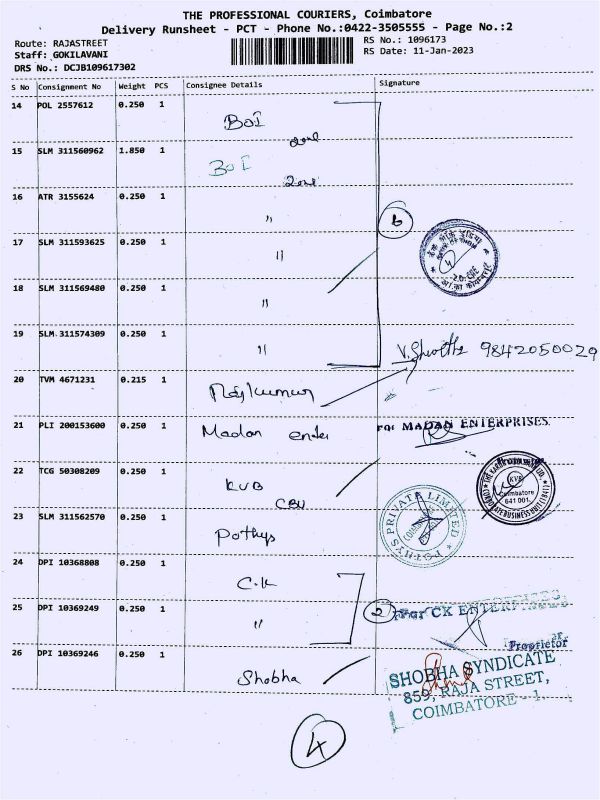 THE PROFESSIONAL COURIERS, Coimbatore
Delivery Runsheet - PCT - Phone No.:0422-3505555 - Page No.:2
Route: RAJASTREET
RS No.: 1096173
Staff: GOKILAVANI
RS Date: 11-Jan-2023
DRS No.: DCJB109617302
S No Consignment No Weight PCS Consignee Details Signature
14 POL 2557612 0.250 1 BOI
zone
15 SLM 311560962 1.850 1 BOI
zone
16 ATR 3155624 0.250 1 "
6
17 SLM 311593625 0.250 1 "
18 SLM 311569480 0.250 1 "
19 SLM 311574309 0.250 1 "
9842050029
20 TVM 4671231 0.215 1 Rajkumar
21 PLI 200153600 0.250 1 Madan enter
For MADAN ENTERPRISES.
22 TCG 50308209 0.250 1 KVB
CBU
KVB
Coimbatore
641 001.
23 SLM 311562570 0.250 1 Pothys
POTHYS PRIVATE LIMITED
24 DPI 10368808 0.250 1 C.K
25 DPI 10369249 0.250 1 "
2
For CK ENTERPRISES
Proprietor
26 DPI 10369246 0.250 1 Shobha
SHOBHA SYNDICATE
859, RAJA STREET,
COIMBATORE - 1.
4